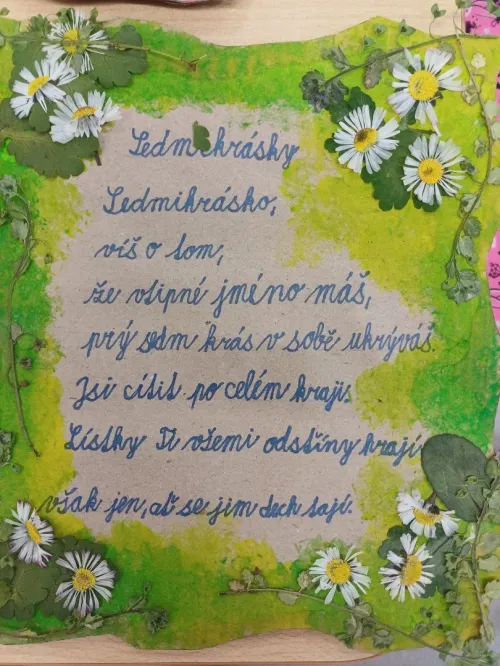 Sedmikrásky
Sedmikrásko,
víš o tom,
že vtipné jméno máš,
prý sedm krás v sobě ukrýváš.
Jsi cítit po celém kraji.
Lístky Ti všemi odstíny hrají,
však jen, ať se jim dech tají.